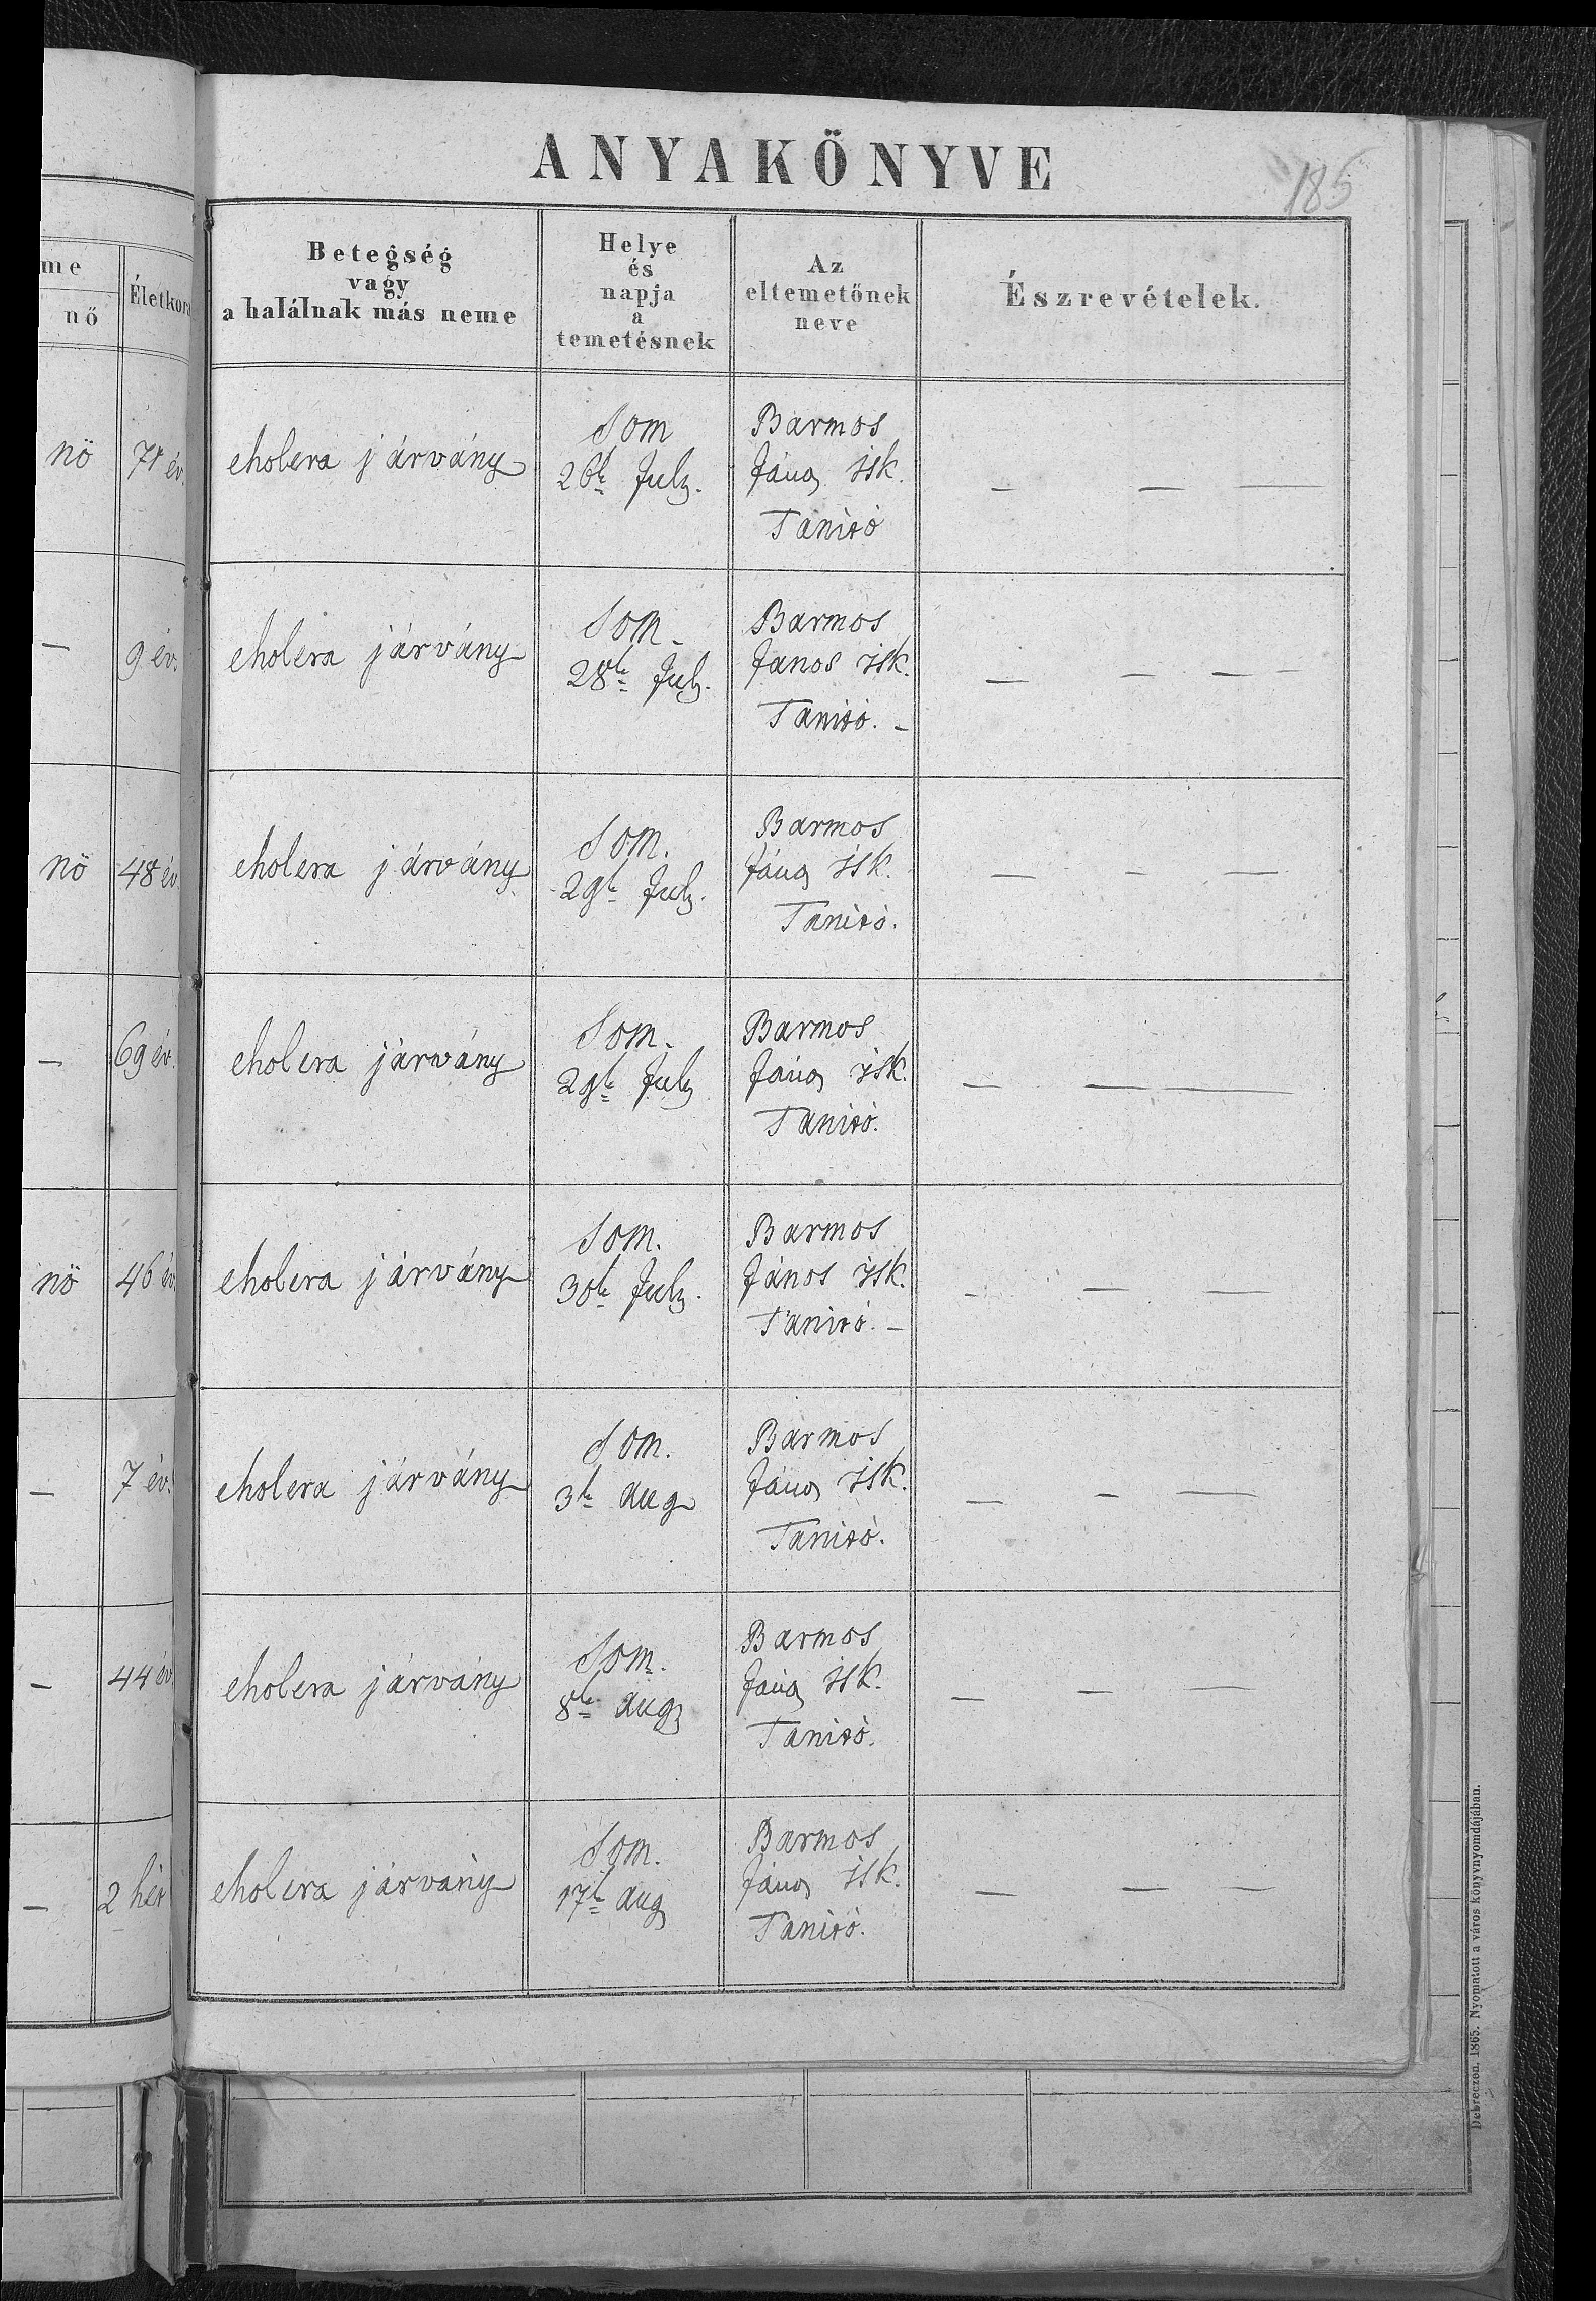 ANYAKÖNYVE
185
me
nő
Életkora
Betegség
vagy
a halálnak más neme
Helye
és
napja
a
temetésnek
Az
eltemetőnek
neve
Észrevételek.
nö
71 év.
cholera járvány
Som
26k July.
Barmos
János isk.
Tanitó
— — —
—
9 év.
cholera járvány
Som.
28k July.
Barmos
János isk.
Tanitó. —
— — —
nö
48 év.
cholera járvány
Som.
29k July.
Barmos
János isk.
Tanitó.
— — —
—
69 év.
cholera járvány
Som.
29k July
Barmos
János isk.
Tanitó.
— —
nö
46 év.
cholera járvány
Som.
30k July.
Barmos
János isk.
Tanitó. —
— — —
—
7 év.
cholera járvány
Som.
3k aug
Barmos
János isk.
Tanitó.
— — —
—
44 év
cholera járvány
Som.
8k aug
Barmos
János isk.
Tanitó.
— — —
—
2 hét
cholera járvány
Som.
17k aug
Barmos
János isk.
Tanitó.
— — —
Debreczen. 1865. Nyomatott a város könyvnyomdájában.